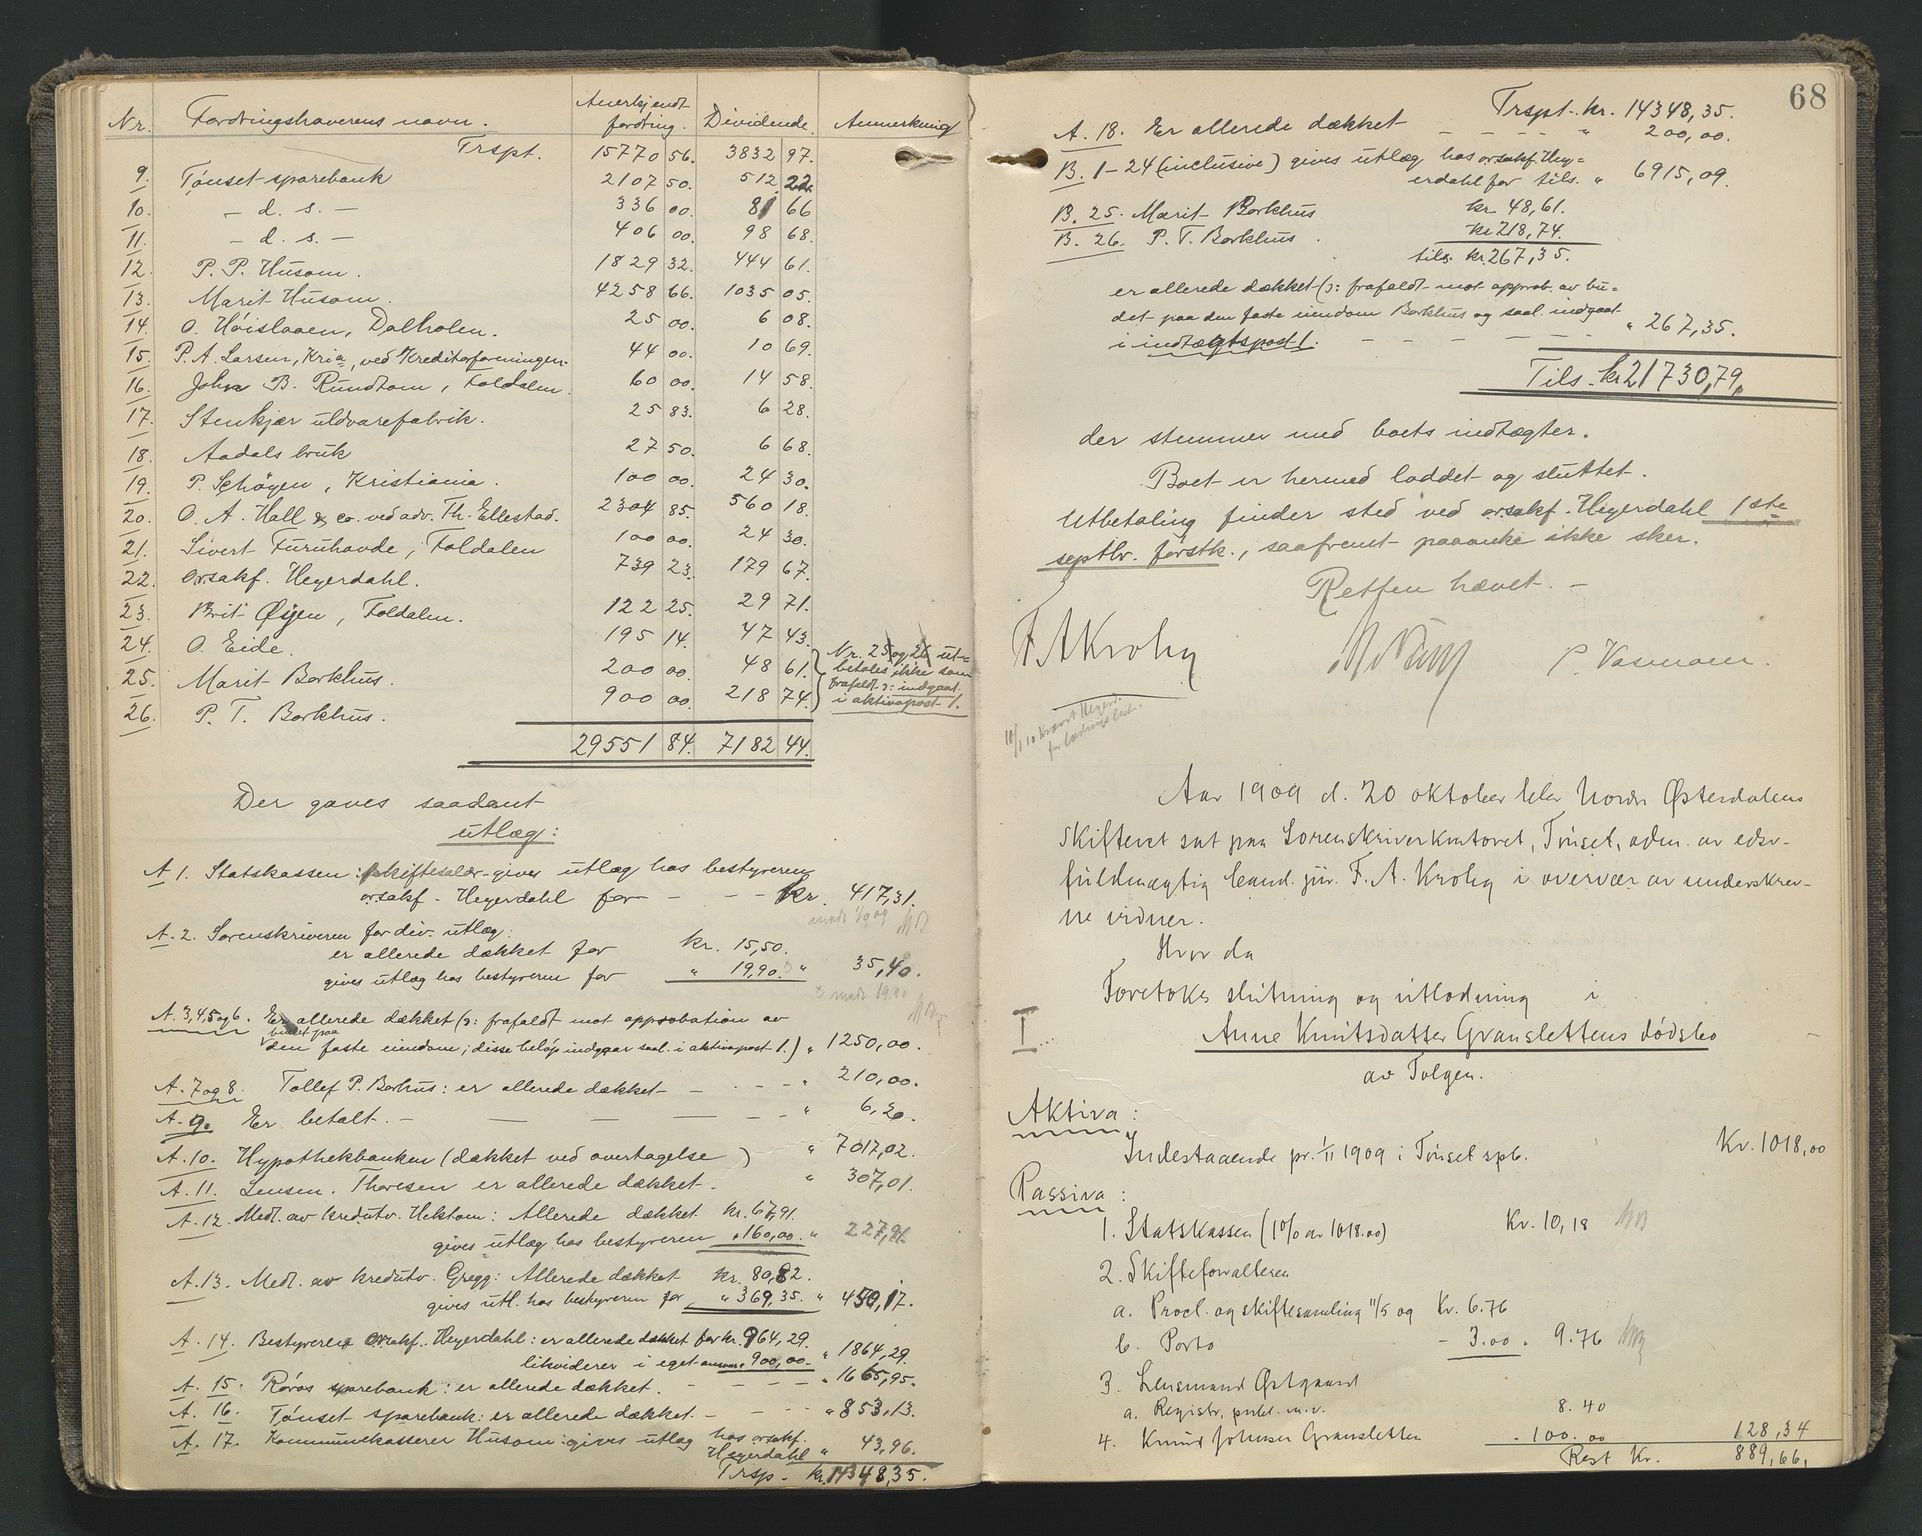 Nr. Fordringshaverens navn. Anerkjendt fordring. Dividende. Anmerkning
Trspt. 15770 56. 3832 97.
9. Tønset sparebank 2107 50. 512 22
10. – d. s. – 336 00. 81 66
11. – d. s. – 406 00. 98 68.
12. P. P. Husom. 1829 32. 444 61.
13. Marit Husom. 4258 66. 1035 05.
14. O. Høislaaen, Dalholen. 25 00. 6 08.
15. P. A. Larsen, Kria, ved Kreditorforeningen. 44 00. 10 69.
16. John B. Rundhom, Foldalen. 60 00. 14 58.
17. Stenkjær uldvarefabrik. 25 83. 6 28.
18. Aadals bruk 27 50. 6 68.
19. P. Schøyen, Kristiania. 100 00. 24 30.
20. O. A. Hall & co. ved adv. Th. Ellestad. 2304 85. 560 18.
21. Sivert Furuhovde, Foldalen 100 00. 24 30.
22. Orsakf. Heyerdahl. 739 23. 179 67.
23. Brit Øyen, Foldalen. 122 25. 29 71.
24. O. Eide. 195 14. 47 43.
25. Marit Borkhus. 200 00. 48 61.
26. P. T. Borkhus. 900 00. 218 74.
Nr. 25 og 26 ut=
betales ikke som
frafaldt ɔ: indgaat
i aktivapost 1.
29551 84. 7182 44.
Der gaves saadant
utlæg:
A 1. Statskassen: skifteselær gives utlæg hos bestyreren
orsakf. Heyerdahl for – – – kr. 417,31.
A. 2. Sorenskriveren for div. utlæg:
er allerede dækket for kr. 15,50.
gives utlæg hos bestyreren for " 19,90. " 35,40.
A. 3,4,5 og 6. Er allerede dækket (ɔ: frafaldt mot approbation av
budet paa
den faste eiendom; disse beløp indgaar saal. i aktivapost 1.) " 1250,00.
A. 7 og 8. Tollef P. Borhus: er allerede dækket – – – " 210,00.
A. 9. Er betalt. – – – – – " 6,20.
A. 10. Hypothekbanken (dækket ved overtagelse) " 7017,02.
A. 11. Lensm. Thoresen er allerede dækket. " 307,01.
A. 12. Medl. av kredutv. Hektom: Allerede dækket kr. 67,91.
gives utlæg hos bestyreren " 160,00. " 227,91.
A. 13. Medl. av kredutv. Gregg: Allerede dækket kr. 80,82.
gives utl. hos bestyreren for " 369,35. " 450,17.
A. 14. Bestyreren orsakf. Heyerdahl: er allerede dækket for kr. 964,29.
likviderer i eget ansvar 900,00. " 1864,29.
A. 15. Røros sparebank: er allerede dækket. – – – – " 1665,95.
A. 16. Tønset sparebank: er allerede dækket. – – – – " 853,13.
A. 17. Kommunekasserer Husom: gives utlæg hos orsakf.
Heyerdahl " 43,96.
Trsp. kr. 14348,35.
68
Trspt. kr. 14348,35.
A. 18. Er allerede dækket – – – – " 200,00.
B. 1–24 (inclusive) gives utlæg hos orsakf. Hey=
erdahl for tils. " 6915,09.
B. 25. Marit Borkhus kr. 48,61.
B. 26. P. T. Borkhus. kr 218,74.
tils. kr. 267,35.
er allerede dækket (ɔ: frafaldt mot approb. av bu=
det paa den faste eiendom Borkhus og saal. indgaat
i indtægtspost 1. – – – – – " 267,35.
Tils. kr 21730,79.
der stemmer med boets indtægter.
Boet er hermed loddet og sluttet.
Utbetaling finder sted ved orsakf. Heyerdahl 1ste
septbr. førstk., saafremt paaanke ikke sker.
Retten hævet. –
F. A Krohg P. Vasmoen.
Aar 1909 d. 20 oktober blev Nordre Østerdalens
Skifteret sat paa Sorenskriverkontoret, Tønset, adm. av edsv-
fuldmægtig Cand. jur. F. A. Krohg i overvær av underskrev-
ne vidner.
Hvor da
Foretokes slutning og utlodning i
I Anne Knutsdatter Gransslettens dødsbo
av Tolgen.
Aktiva:
Indestaaende pr. 1/11 1909 i Tønset spb. Kr. 1018,00
Passiva:
1. Statskassen (1% av 1018.00) Kr. 10,18
2. Skifteforvalteren
a. Procl. og skiftesamling 11/5 og Kr. 6.76
b. Porto – 3.00 " 9.76
3. Lensmand Østgaard
a. Registr, publ. m. v. 8.40
4. Knud Johnsen Gransletten – 100.00 128,34
Rest Kr. 889,66.